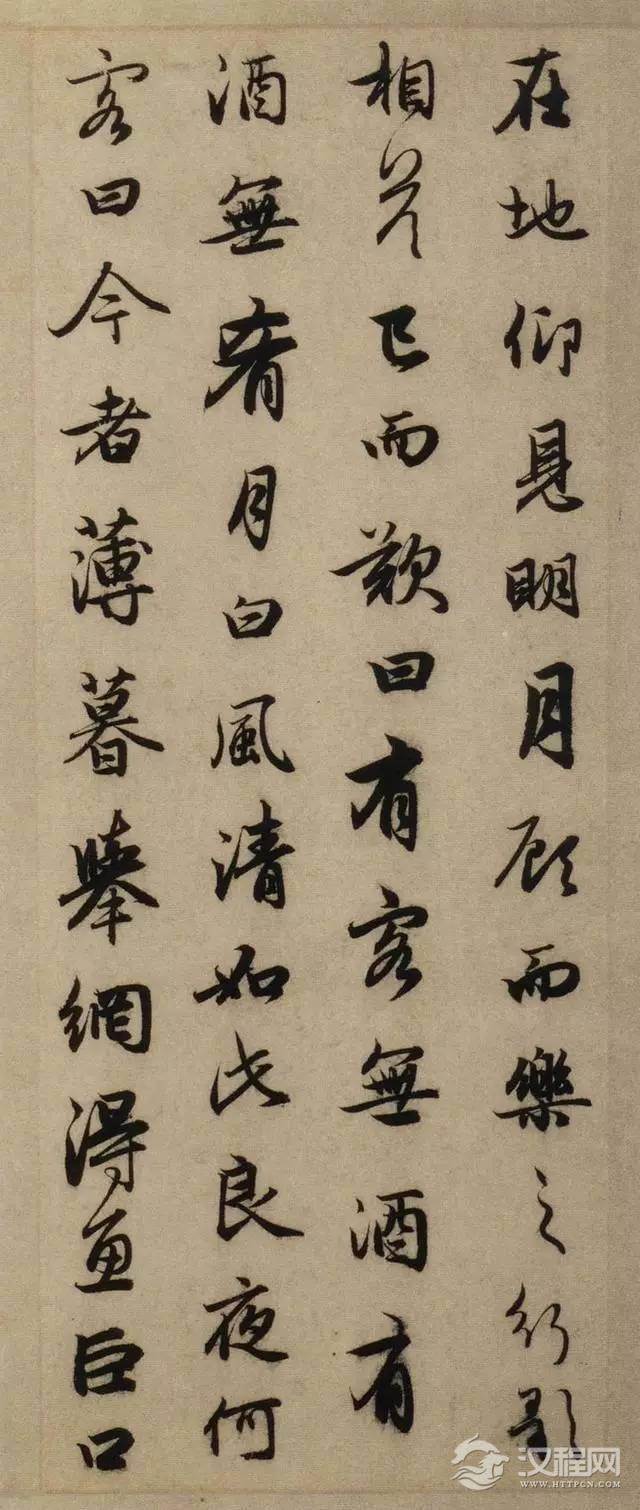 在地仰見明月顧而樂之行歌
相答已而歎曰有客無酒有
酒無肴月白風清如此良夜何
客曰今者薄暮舉網得魚巨口
汉程网
WWW.HTTPCN.COM